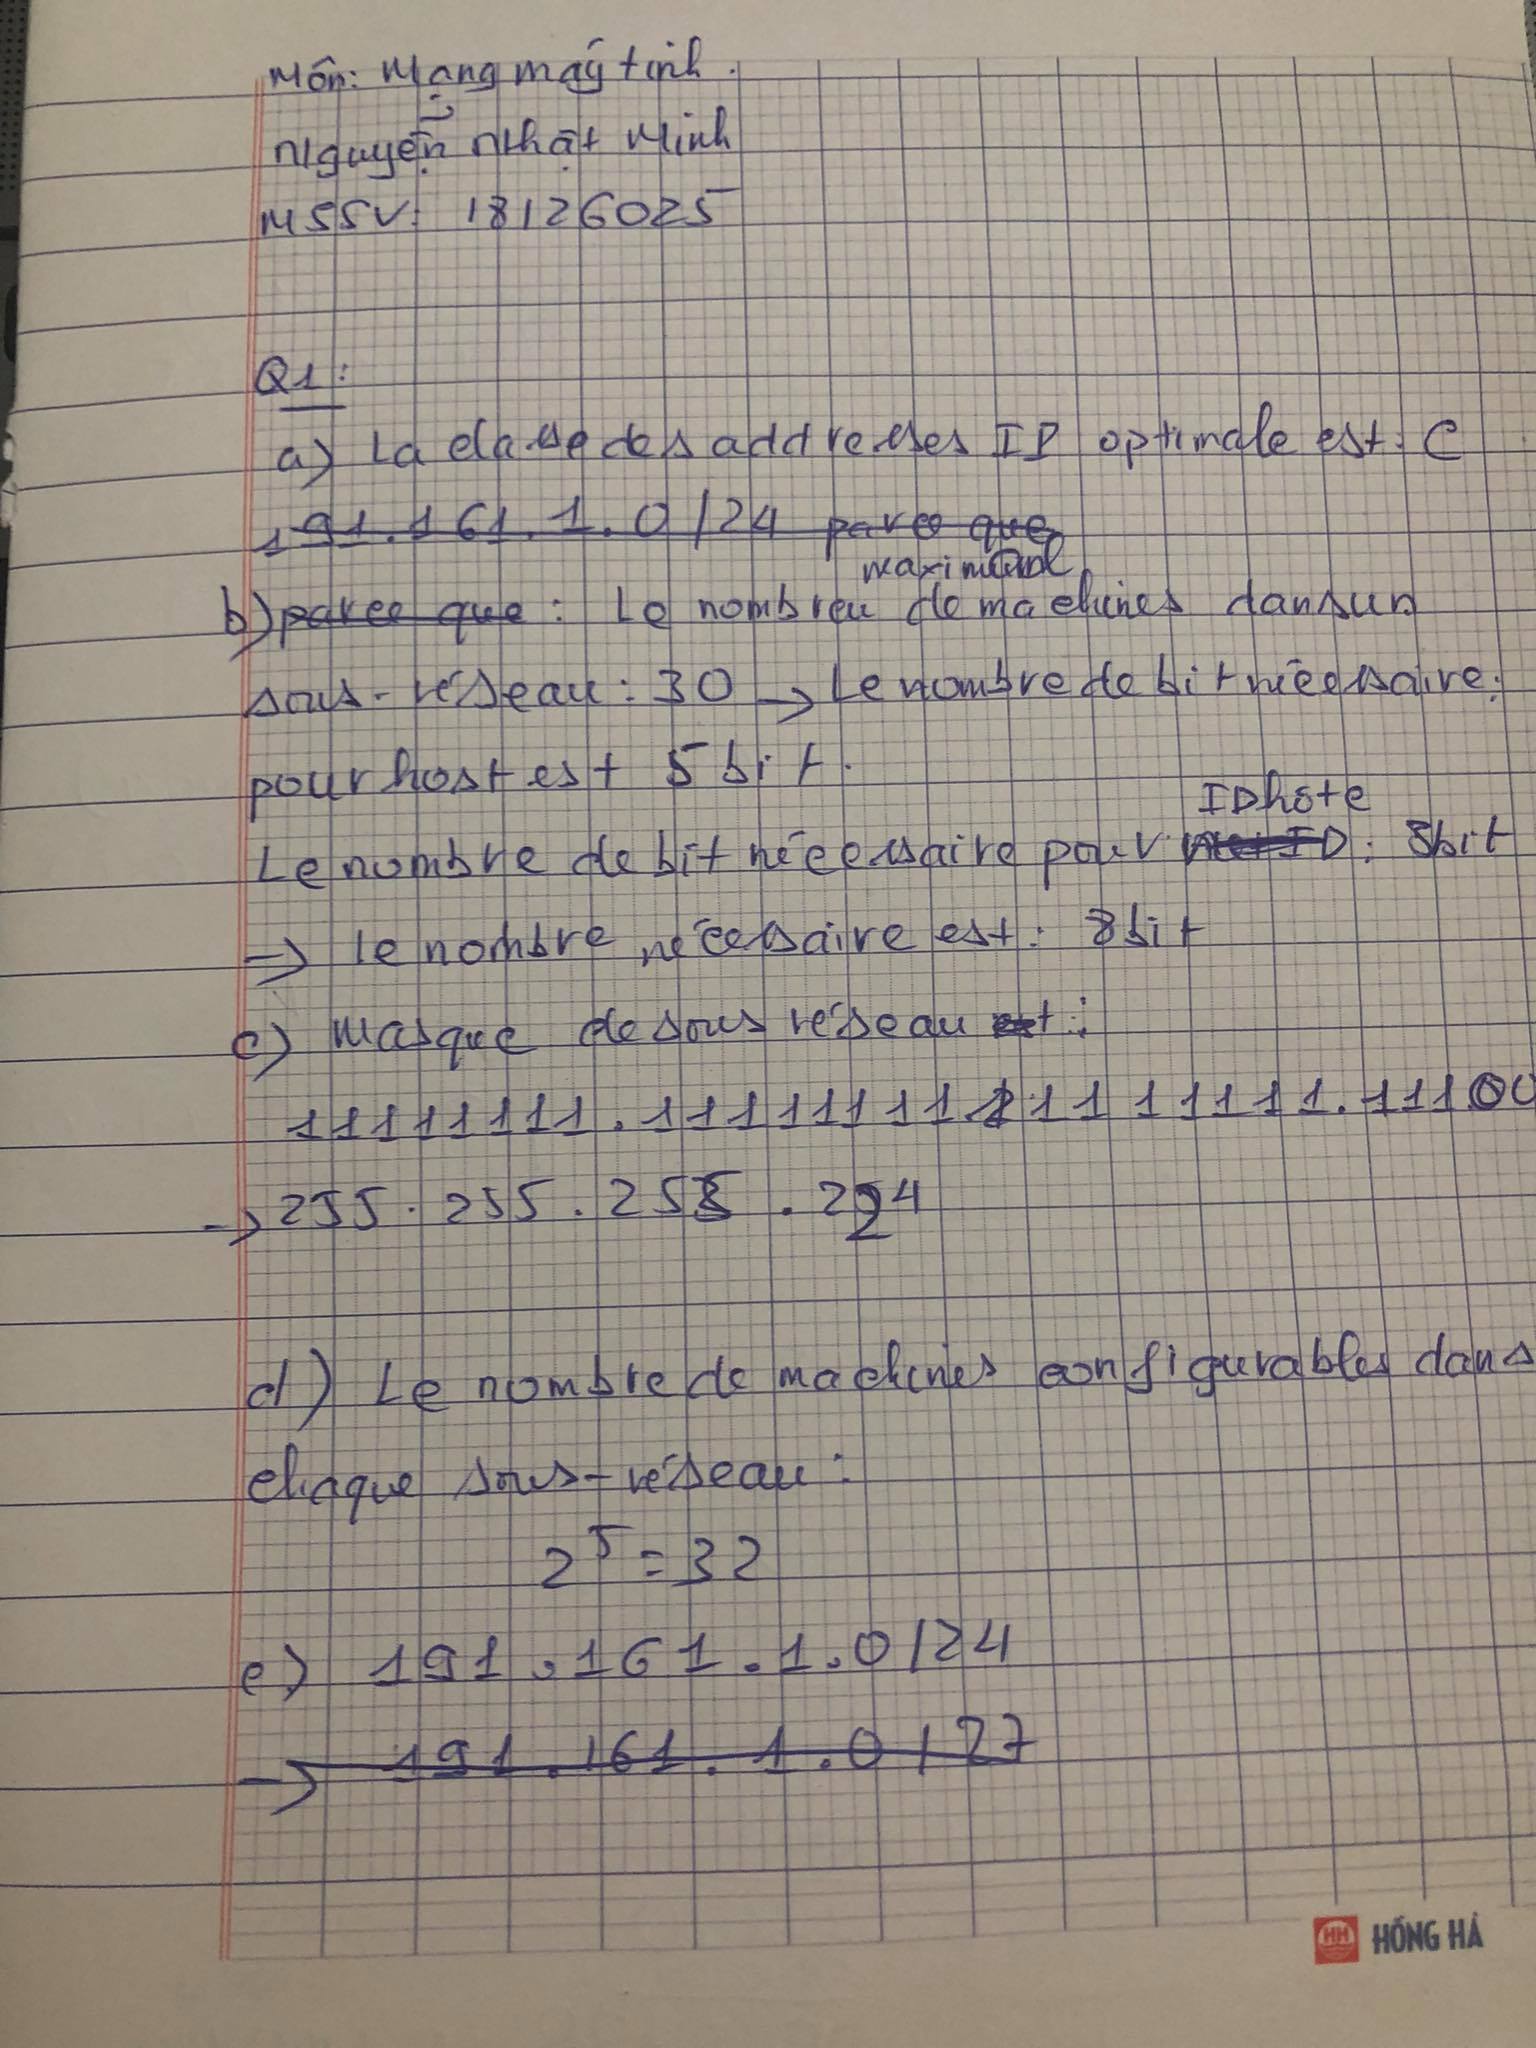 Môn: Mạng máy tính.
Nguyễn Nhật Minh
MSSV: 18126025
Q1:
a) La classe des addresses IP optimale est: C
191.161.1.0/24 parce que
maximal
b) parce que: Le nombreu de machines dans un
sous-réseau: 30 → Le nombre de bit nécessaire:
pour host est 5 bit.
ID hôte
Le nombre de bit nécessaire pour ID: 8bit
→ le nombre nécessaire est: 8bit
c) Masque de sous réseau est:
11111111.11111111.11111111.11100
→ 255.255.255.224
d) Le nombre de machines configurables dans
chaque sous-réseau:
2⁵ = 32
e) 191.161.1.0/24
→ 191.161.1.0/27
HH HỒNG HÀ